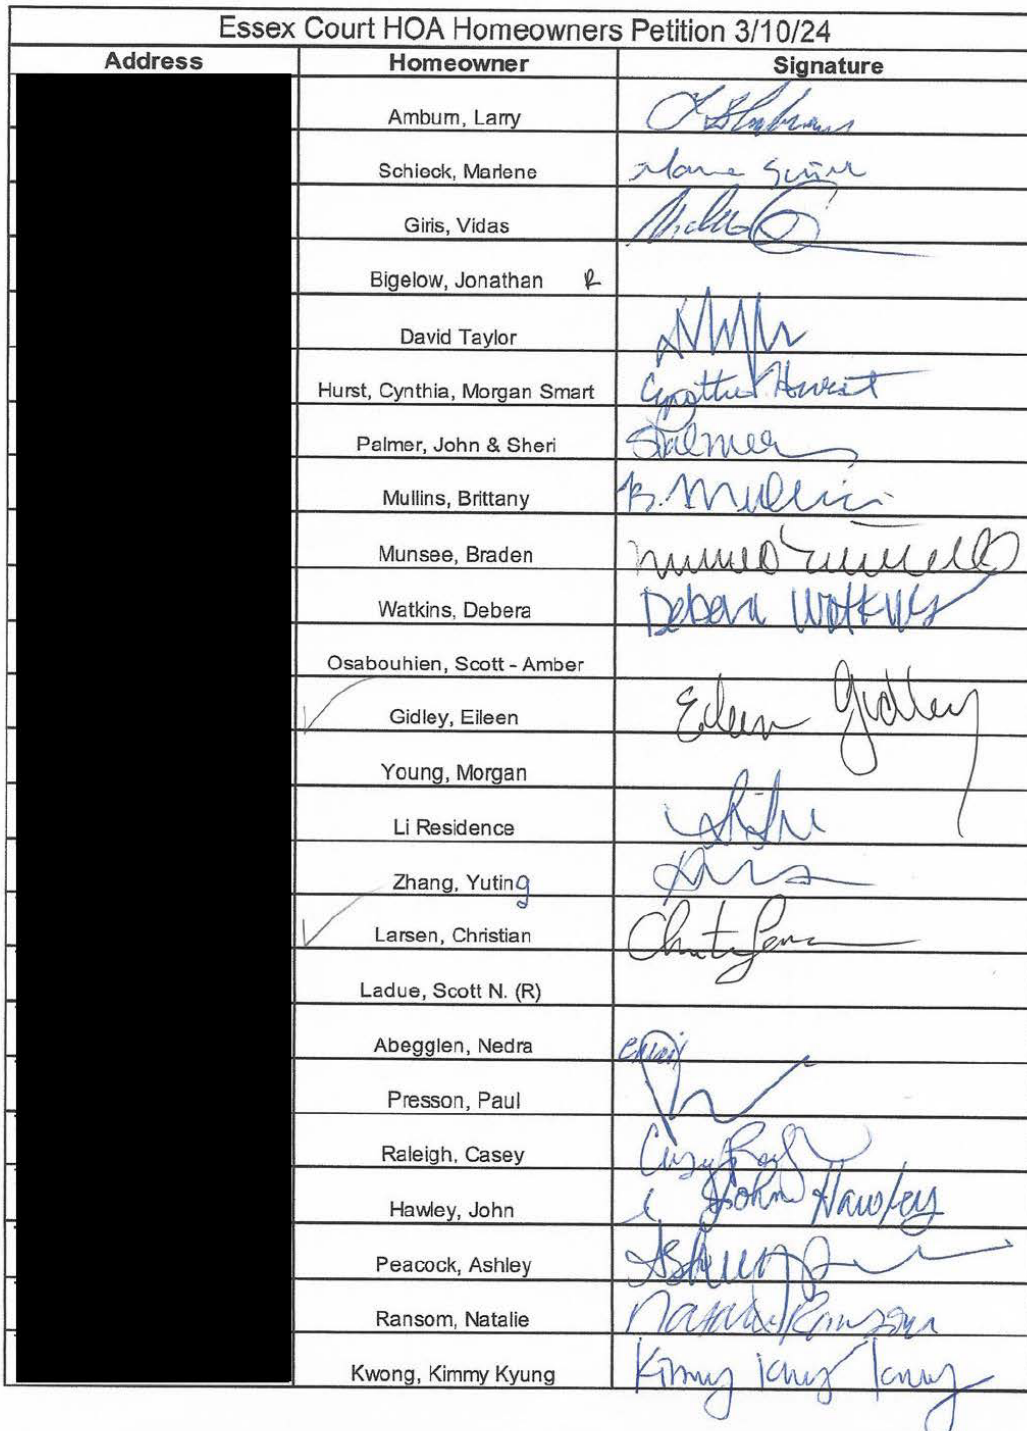 Essex Court HOA Homeowners Petition 3/10/24
Address Homeowner Signature
Amburn, Larry
Schieck, Marlene
Giris, Vidas
Bigelow, Jonathan R
David Taylor
Hurst, Cynthia, Morgan Smart Cynthia Hurst
Palmer, John & Sheri SPalmer
Mullins, Brittany B. Mullins
Munsee, Braden
Watkins, Debera Debera Watkins
Osabouhien, Scott - Amber
Gidley, Eileen Eileen Gidley
Young, Morgan
Li Residence
Zhang, Yuting
Larsen, Christian
Ladue, Scott N. (R)
Abegglen, Nedra
Presson, Paul
Raleigh, Casey
Hawley, John John Hawley
Peacock, Ashley
Ransom, Natalie Natalie Ransom
Kwong, Kimmy Kyung Kimmy